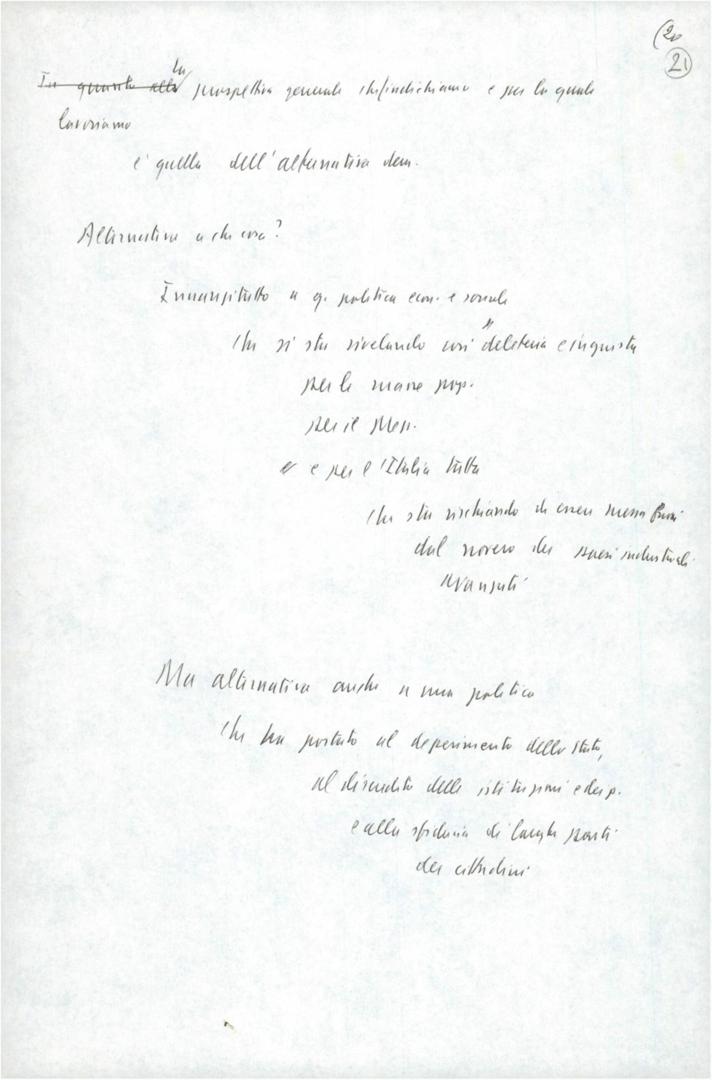 (20
21
~~In quanto alla~~ La prospettiva generale che indichiamo e per la quale
lavoriamo
è quella dell'alternativa dem.
Alternativa a che cosa?
Innanzitutto a q. politica econ. e sociale
che si sta rivelando così deleteria e ingiusta
per le masse pop.
per il Mezz.
e per l'Italia tutta
che sta rischiando di essere messa fuori
dal novero dei paesi industriali
avanzati
Ma alternativa anche a una politica
che ha portato al deperimento dello Stato,
al discredito delle istituzioni e dei p.
e alla sfiducia di larghe parti
dei cittadini